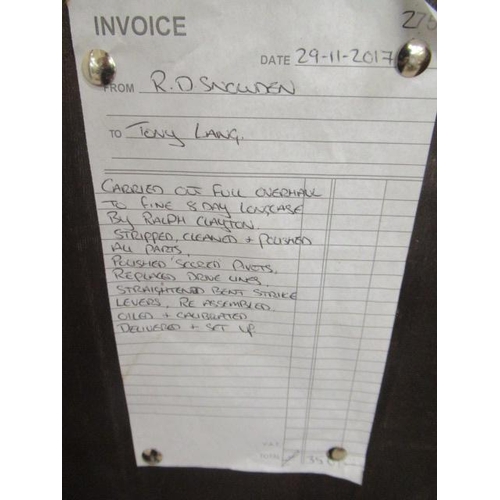 INVOICE 276
DATE 29-11-2017
FROM R.D SNOWDEN
TO TONY LANG.
CARRIED OUT FULL OVERHAUL
TO FINE 8 DAY LONGCASE
BY RALPH CLAYTON.
STRIPPED, CLEANED + POLISHED
ALL PARTS.
POLISHED SCORED PIVOTS.
REPLACED DRIVE LINES.
STRAIGHTENED BENT STRIKE
LEVERS, RE ASSEMBLED.
OILED + CALIBRATED.
DELIVERED + SET UP
TOTAL